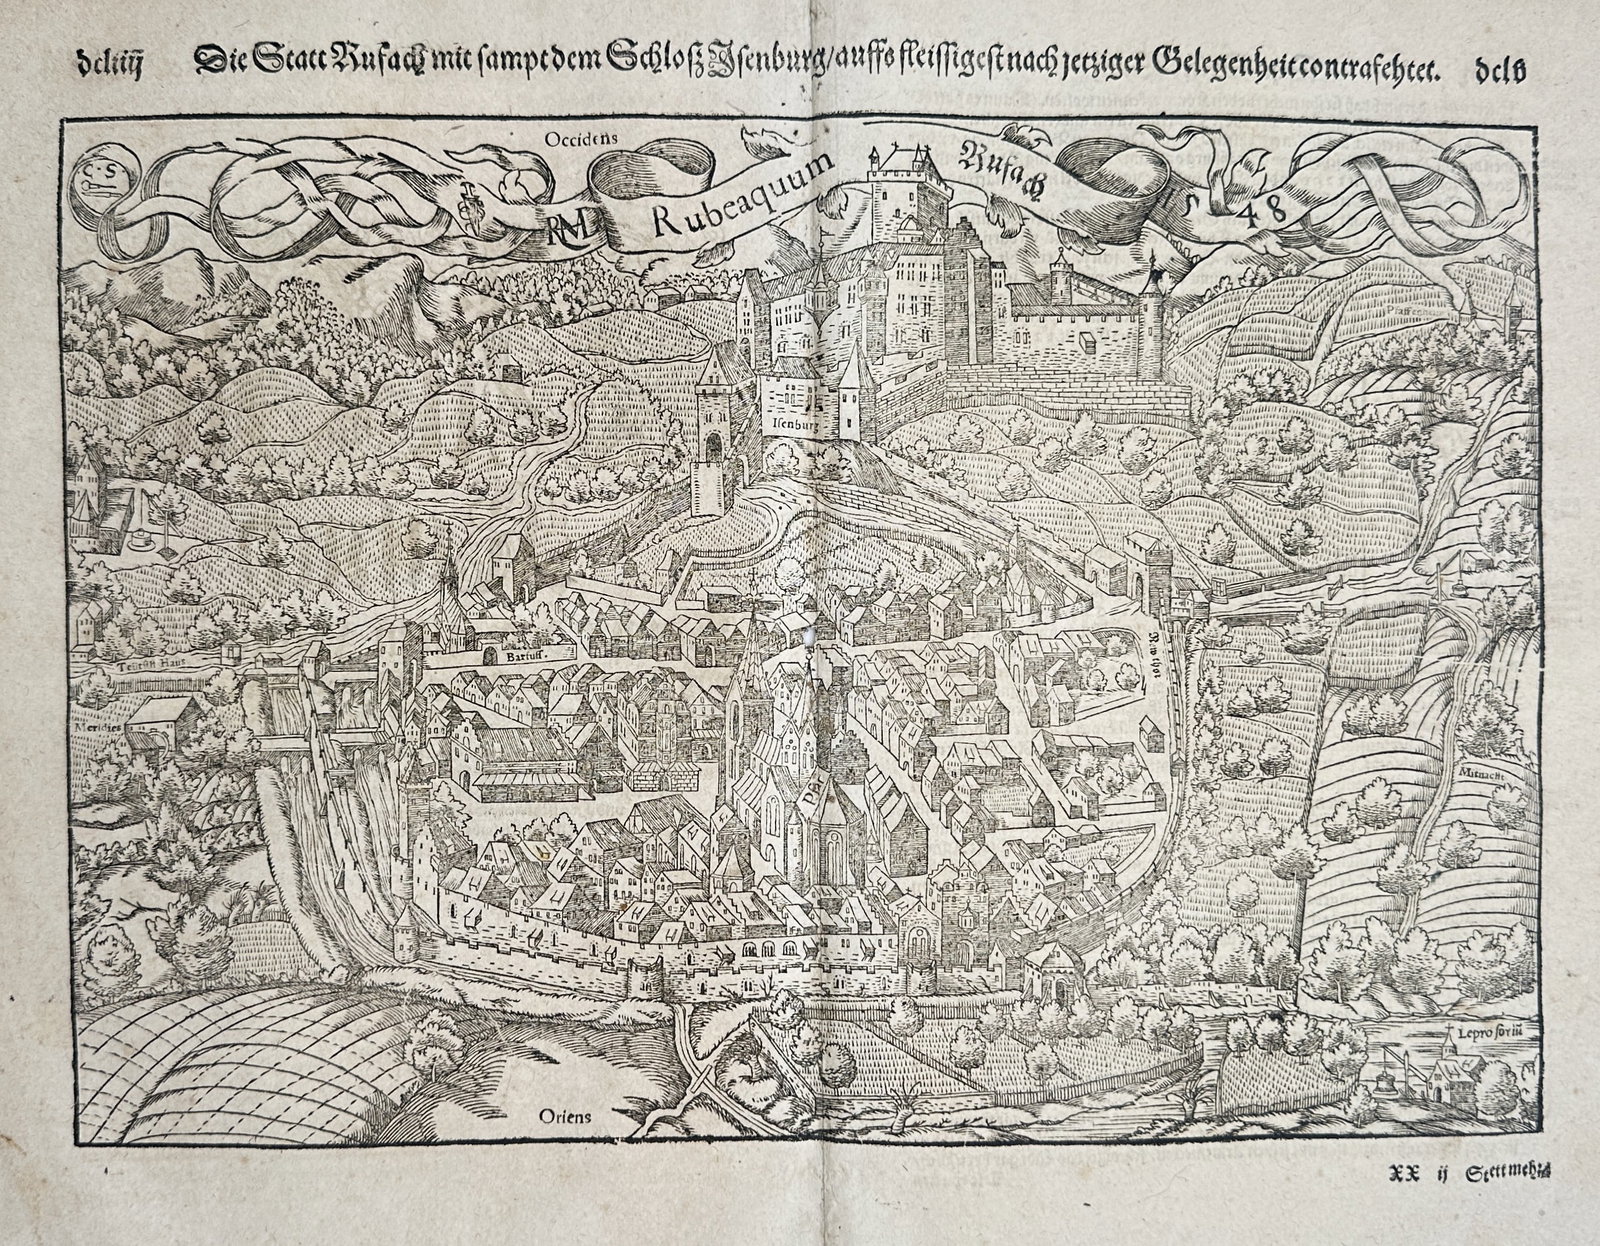 dcliiij Die Statt Rufach mit sampt dem Schloß Jsenburg/auffs fleissigest nach jetziger Gelegenheit contrafehtet. dclv
Occidens
C·S
RMD
Rubeaquum
Rufach
1548
Pfaffen
Isenburg
Teutsch Haus
Barfuss.
New thor
Meridies
Mitnacht
Leprosoriū
Oriens
XX ij Stett mehr